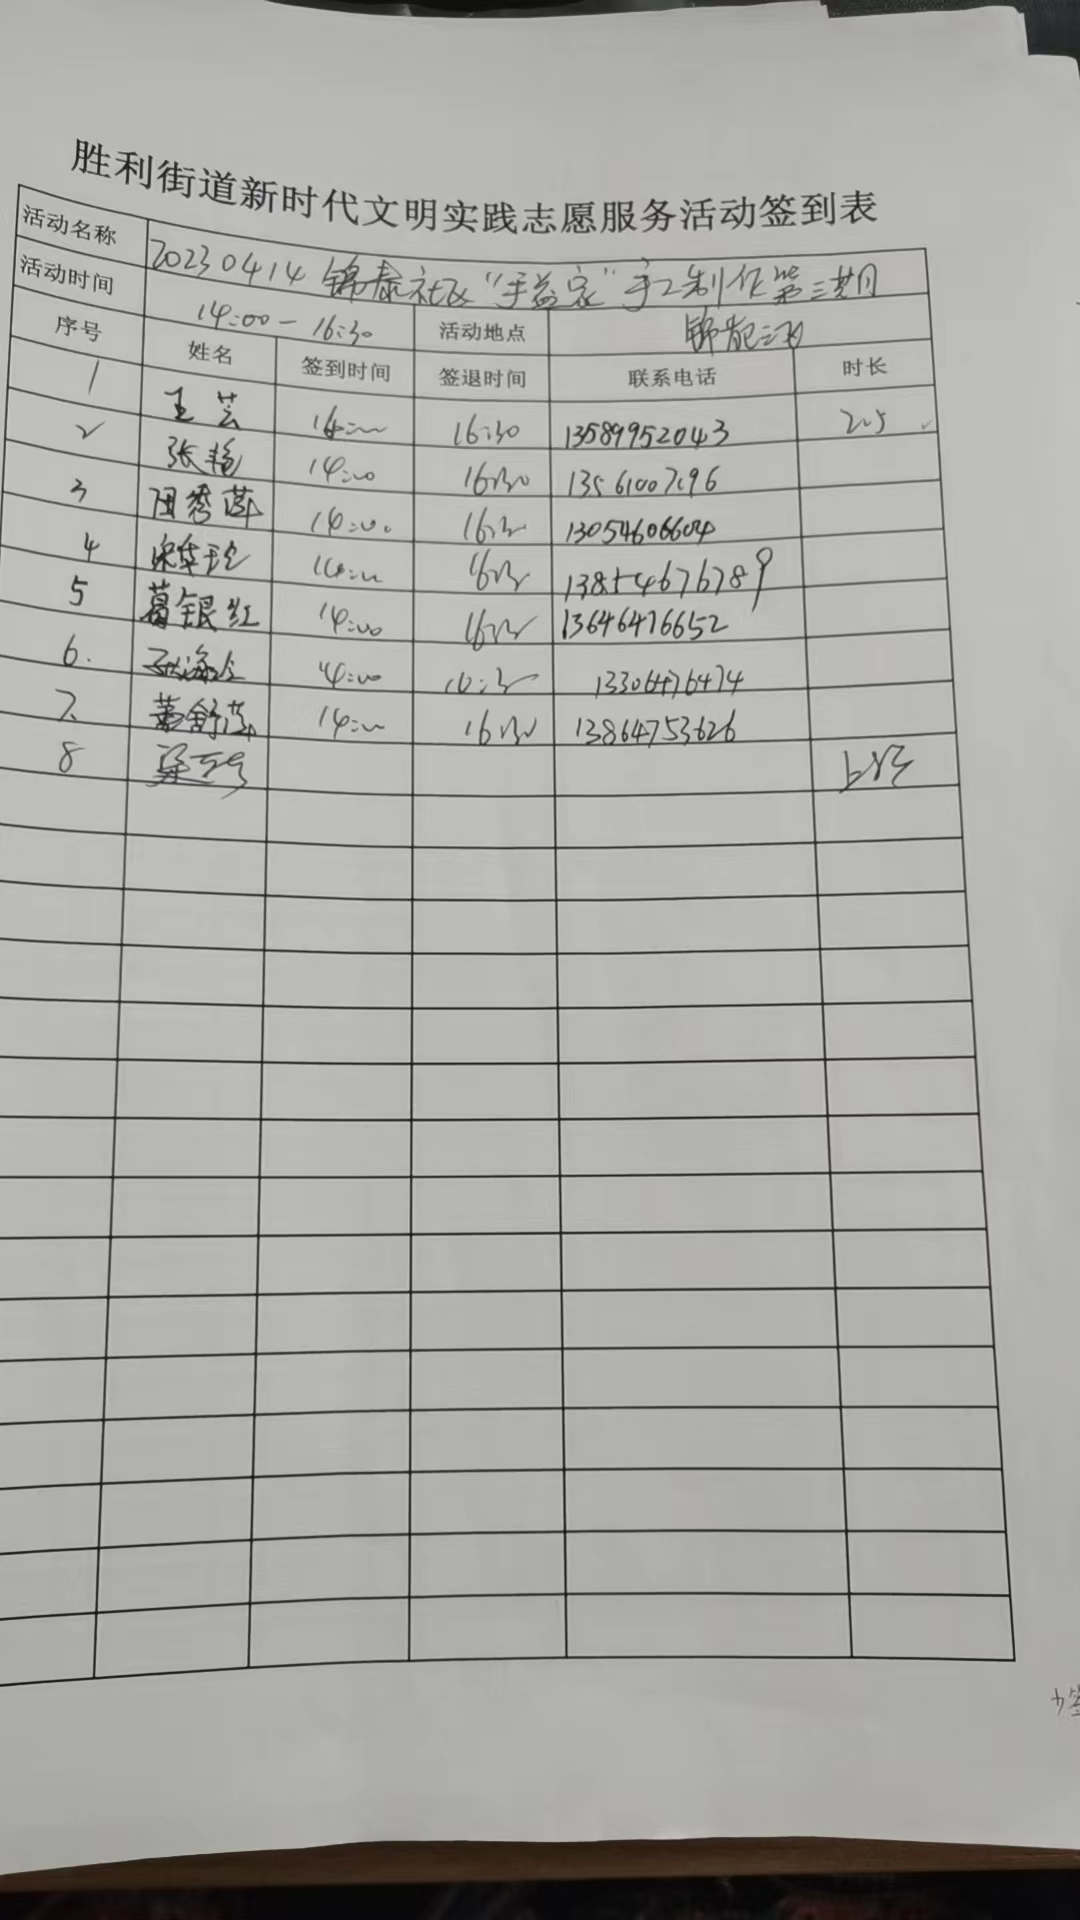 胜利街道新时代文明实践志愿服务活动签到表
活动名称 20230414 锦泰社区“手益家”手工制作第三期
活动时间 14:00-16:30 活动地点
序号 姓名 签到时间 签退时间 联系电话 时长
1 王芸 14:00 16:30 13589952043 2.5
2 张艳 14:00 16:30
3 田秀萍 14:00. 16:30 13054606604
4 14:00 16:30 13854676789
5 葛银红 14:00 16:30 13646476652
6. 14:00 16:30 13306476474
7. 董舒萍 14:00 16:30 13864753626
8